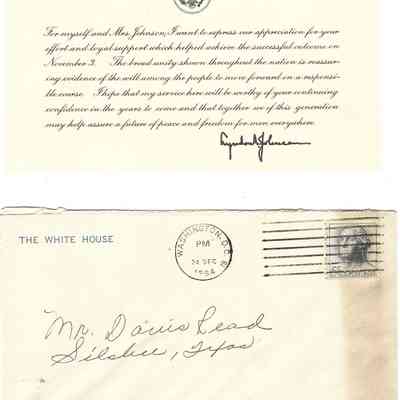 For myself and Mrs. Johnson, I want to express our appreciation for your
effort and loyal support which helped achieve the successful outcome on
November 3. The broad unity shown throughout the nation is reassur-
ing evidence of the will among the people to move forward on a responsi-
ble course. I hope that my service here will be worthy of your continuing
confidence in the years to come and that together we of this generation
may help assure a future of peace and freedom for men everywhere.
Lyndon B. Johnson
THE WHITE HOUSE
WASHINGTON, D.C.
PM
DEC
1964
Mr. Davis Read
Silsbee, Texas